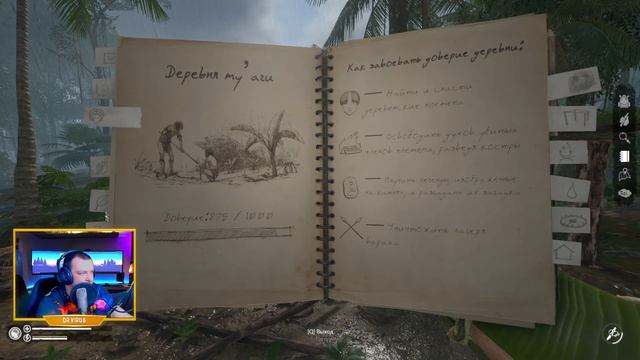 Деревня му'аги
Доверие: 875 / 1000
Как завоевать доверие деревни:
— Найти и спасти
деревенские племена
— Освободить духов убитых
членов племени, разведя костры
— Изучить легенду, изображённую
на камнях, и
— Уничтожить лагерь
[Q] Выход
DR.VIRUS